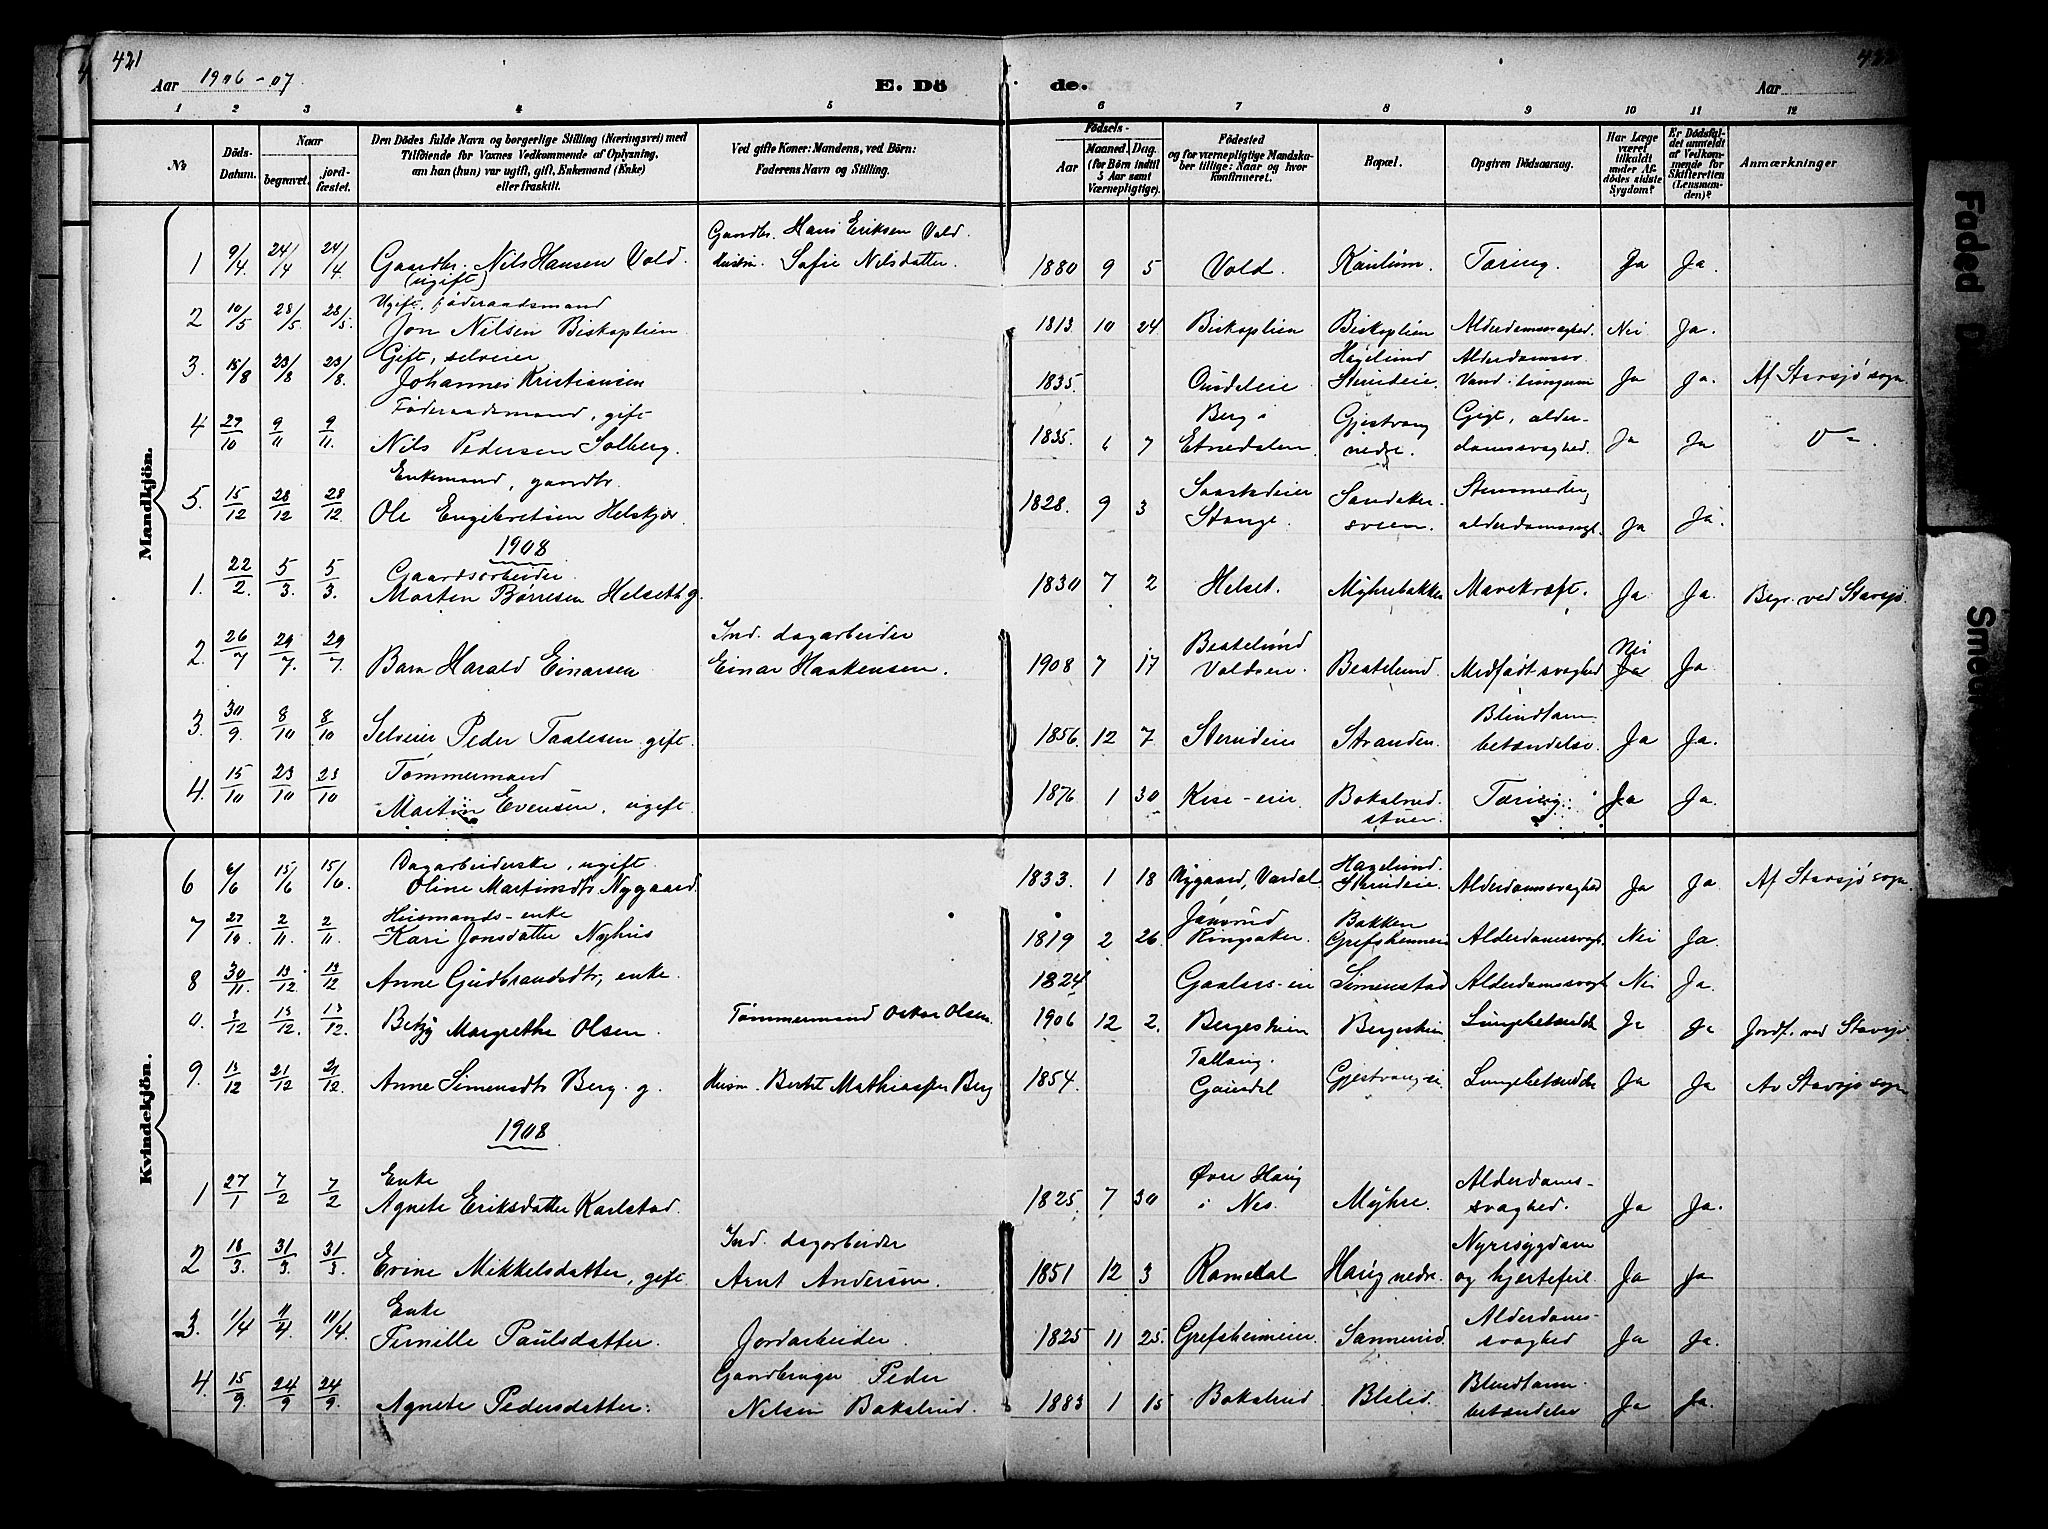 421
Aar 1906-07.
E. Dö
de.
Aar
1 2 3 4 5 6 7 8 9 10 11 12
No
Döds-Datum.
Naar
begravet.
jord-fæstet.
Den Dödes fulde Navn og borgerlige Stilling (Næringsvei) med
Tilföiende for Voxnes Vedkommende af Oplysning,
om han (hun) var ugift, gift, Enkemand (Enke)
eller fraskilt.
Ved gifte Koner: Mandens, ved Börn:
Faderens Navn og Stilling.
Födsels-
Aar
Maaned. Dag.
(for Börn indtil
5 Aar samt
Værnepligtige).
Födested
og for værnepligtige Mandska-
ber tillige: Naar og hvor
konfirmeret.
Bopæl.
Opgiven Dödsaarsag.
Har Læge
været
tilkaldt
under Af-
dödes sidste
Sygdom?
Er Dödsfal-
det anmeldt
af Vedkom-
mende for
Skifteretten
(Lensman-
den)?
Anmærkninger
Mandkjön.
1 9/4 24/4 24/4 Gaardbr. Nils Hansen Vold. (ugift) Gaardbr. Hans Eriksen Vold. Hustru Sofie Nilsdatter. 1880 9 5 Vold. Tæring. Ja Ja.
2 10/5 28/5 28/5. Ugift. Føderaadsmand Jon Nilsen Biskoplien 1813. 10 24. Biskoplien Biskoplien Alderdomssvaghed. Nei Ja.
3. 18/8 23/8 23/8. Gift, selveier Johannes Kristiansen 1835. Hagelund Stenseie. Alderdomssv. Vand i lungerne Ja Ja. Af Stavsjø sogn.
4 27/10 9/11 9/11. Føderaadsmand, gift Nils Pedersen Solberg. 1835. 6 7 Berg i Etnedalen Gjestvang nedre. Gigt, alder-domssvaghed. Ja Ja
5. 15/12 28/12 28/12 Enkemand, gaardbr. Ole Engebretsen Helskjør 1828. 9 3 Stange. Sandaker-sveen. alderdomssvagh. Ja Ja.
1908
1. 22/2. 5/3. 5/3. Gaardsarbeider. Morten Børresen Helseth g. 1830 7 2 Helset. Myhrebakken Mavekræft. Ja Ja. Begr. ved Stavsjø.
2. 26/7 29/7. 29/7. Barn Harald Einarsen Ind. dagarbeider Einar Haakensen. 1908 7 17 Beatelund Valdsen. Beatelund. Medfødt svaghed Nei Ja Ja.
3. 30/9 8/10 8/10 Selveier Peder Taalesen gift. 1856. 12 7. Steinseie Stranden. Blindtarm-betændelse. Ja Ja.
4. 15/10 23/10 23/10 Tømmermand Martin Evensen, ugift. 1876. 1 30 Kise-eie Bakalrud-stuen. Tæring. Ja Ja.
Kvindekjön.
6 6/6 15/6 15/6. Dagarbeiderske, ugift. Oline Martinsdtr. Nygaard. 1833. 1 18 Nygaard, Vardal. Hagelund. Stenseie. Alderdomssvaghed Ja Ja. Af Stavsjø sogn.
7 27/10. 2/11. 2/11. Husmands-enke Kari Jonsdatter Nyhus 1819 2 26. Ringsaker. Bakken Grefsheimeie Alderdomssvagh. Nei Ja.
8 30/11. 13/12. 13/12 Anne Gudbrandsdtr, enke. 1824 Gaalaas-eie Simenstad Alderdomssvagh Nei Ja.
0. 3/12 13/12. 13/12. Betzy Margrethe Olsen. Tømmermand Oskar Olsen. 1906 12 2. Bergeskien Bergeskien Lungebetændelse Ja Ja Jordf. ved Stavsjø
9. 13/12 21/12 21/12. Anne Simensdtr Berg. g. Husm. Berthel Mathiassen Berg 1854. Gausdal Gjestvangeie Lungebetændelse Ja Ja Av Stavsjø sogn
1908.
1 27/1 7/2 7/2 Enke Agnete Eriksdatter Karlstad. 1825 7 30 Øvre Haug i Nes. Myhre. Alderdoms-svaghed. Ja Ja.
2 18/3. 31/3. 31/3. Evine Mikkelsdatter, gift. Ind. dagarbeider Arnt Andersen. 1851 12 3 Ramedal Haug nedre. Nyresygdom og hjertefeil. Ja Ja
3. 1/4 11/4. 11/4. Enke Pernille Paulsdatter. Jordarbeider. 1825 11 25. Grefsheimeie. Sannerud. Alderdoms-svaghed Ja Ja.
4. 15/9. 24/9 24/9. Agnete Pedersdatter. Gaardbruger Peder Nilsen Bakalrud. 1883 1 15 Bakalrud Blilid. Blindtarm-betændelse Ja Ja.
Faded